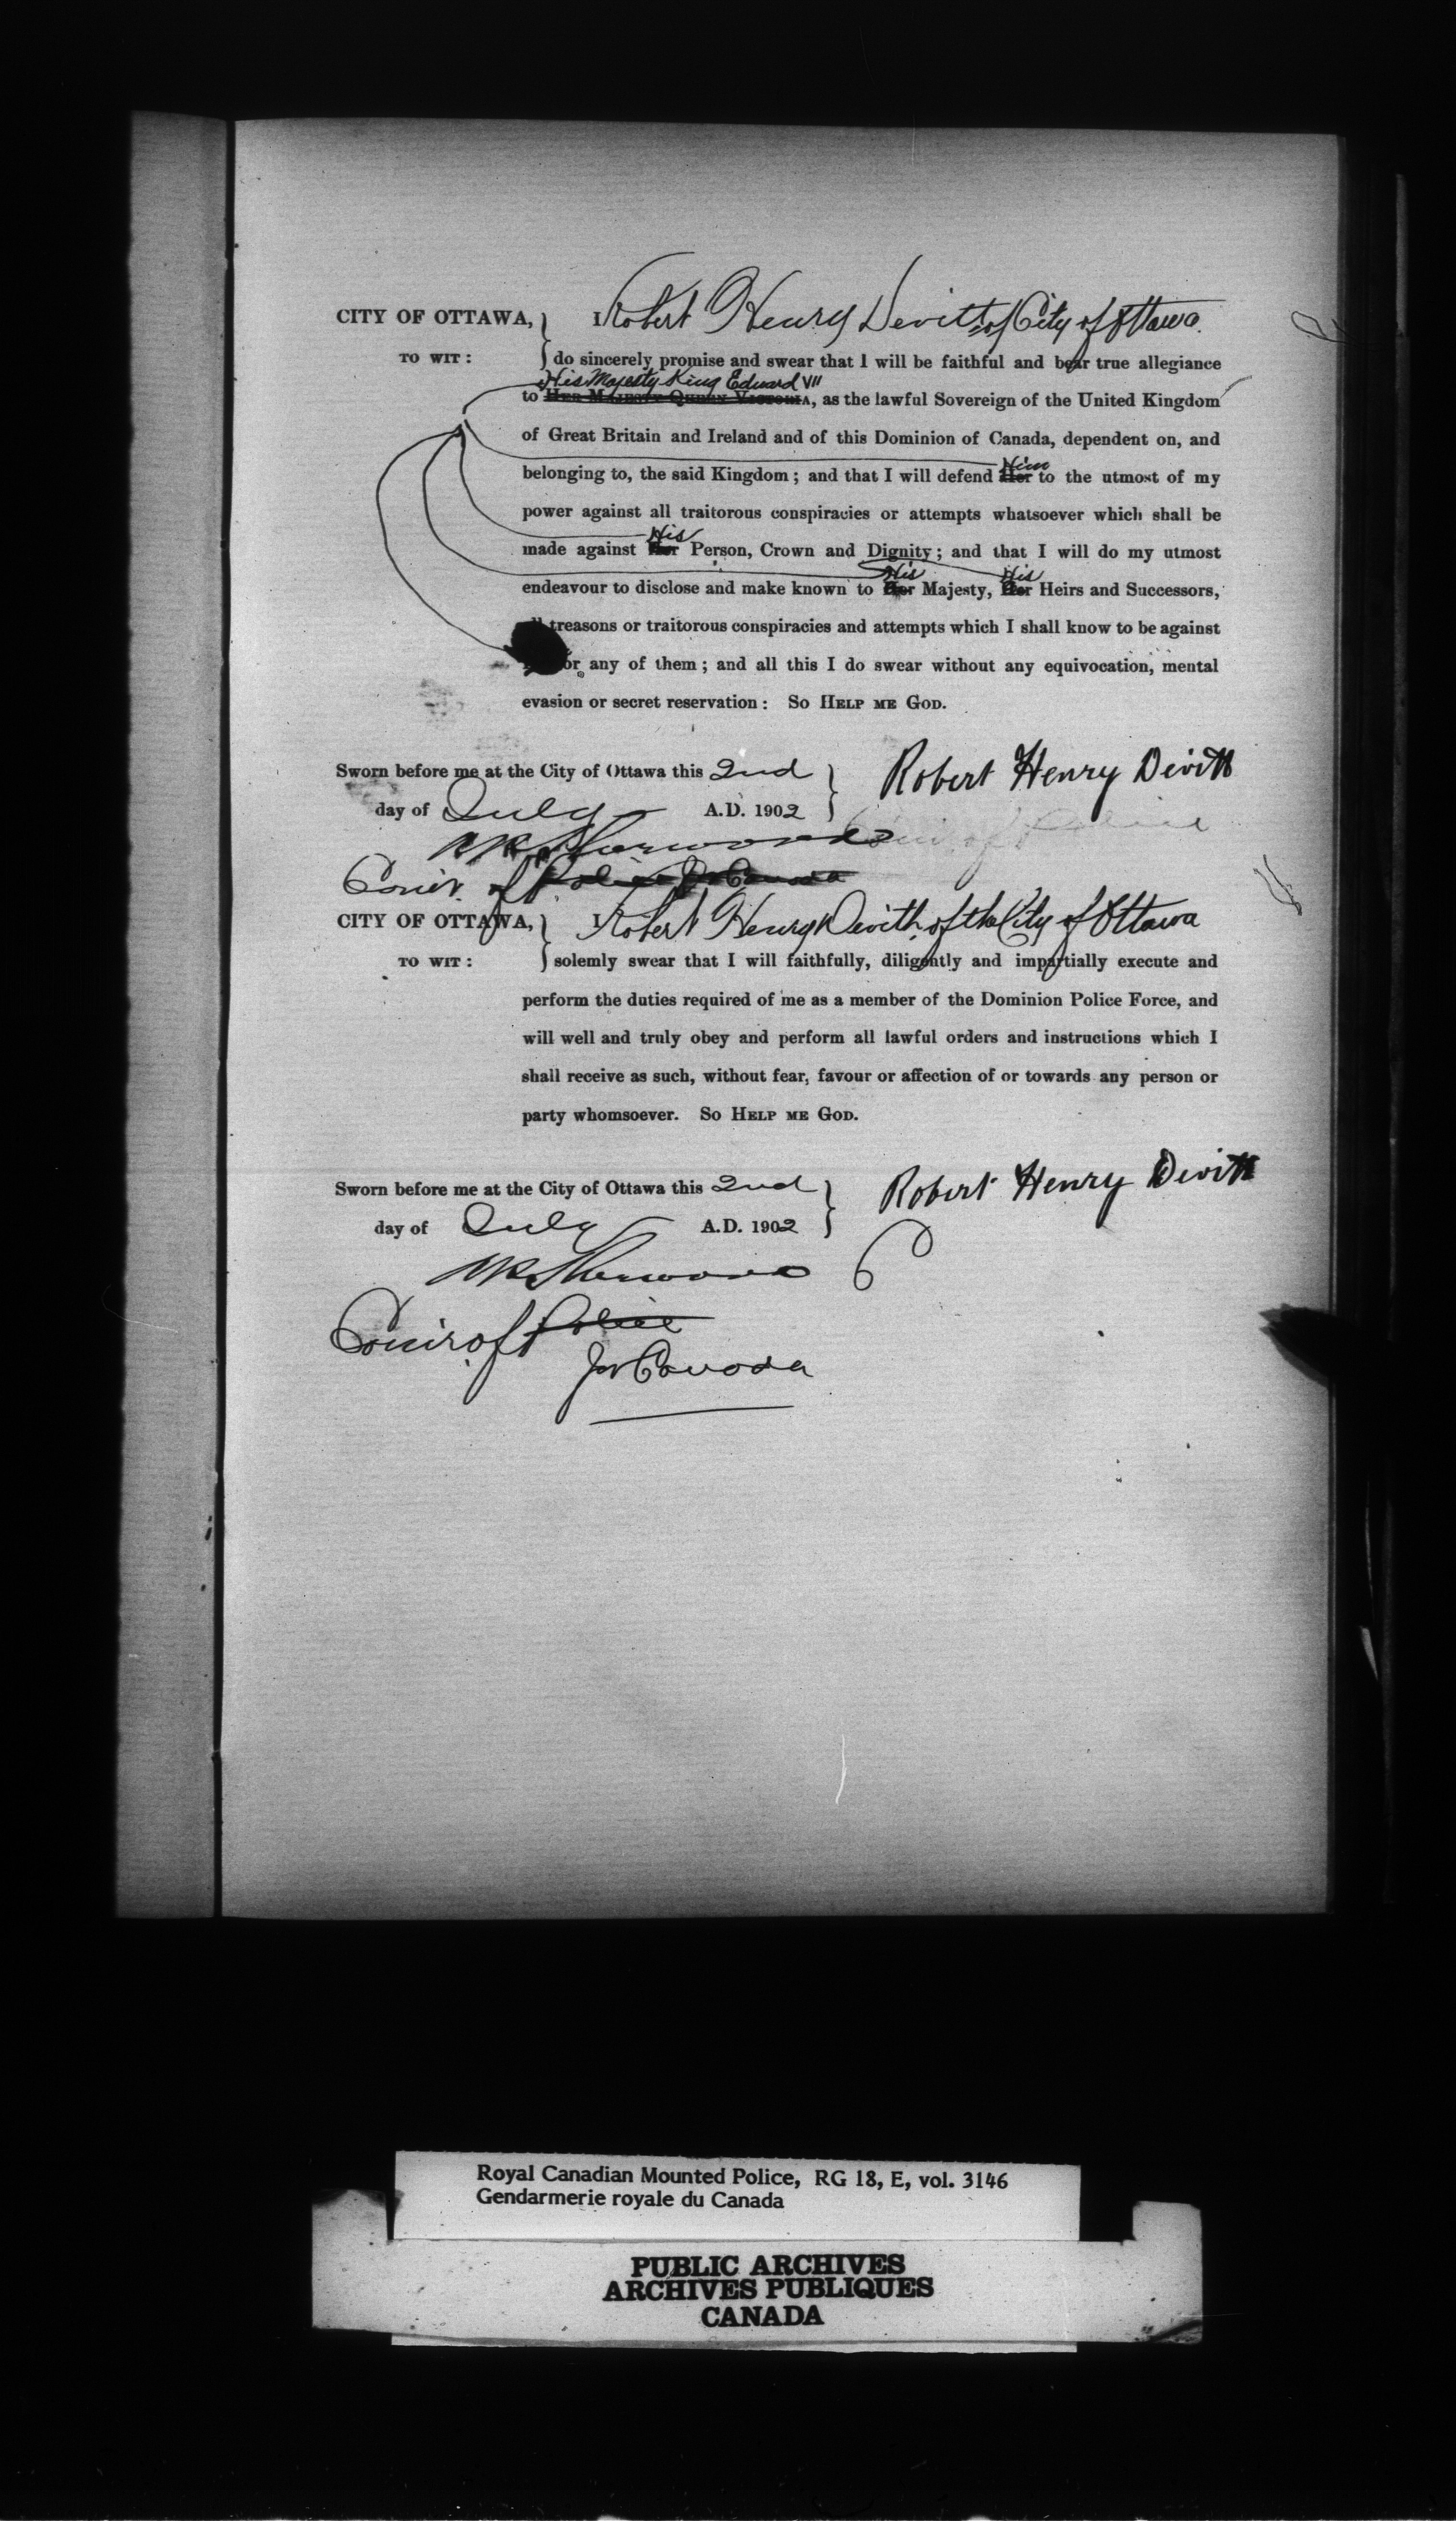 CITY OF OTTAWA, } I Robert Henry Devitt of City of Ottawa
TO WIT : } do sincerely promise and swear that I will be faithful and bear true allegiance
His Majesty King Edward VII
to HER MAJESTY QUEEN VICTORIA, as the lawful Sovereign of the United Kingdom
of Great Britain and Ireland and of this Dominion of Canada, dependent on, and
Him
belonging to, the said Kingdom ; and that I will defend Her to the utmost of my
power against all traitorous conspiracies or attempts whatsoever which shall be
His
made against Her Person, Crown and Dignity ; and that I will do my utmost
His His
endeavour to disclose and make known to Her Majesty, Her Heirs and Successors,
treasons or traitorous conspiracies and attempts which I shall know to be against
or any of them ; and all this I do swear without any equivocation, mental
evasion or secret reservation : SO HELP ME GOD.
Sworn before me at the City of Ottawa this 2nd } Robert Henry Devitt
day of July A.D. 1902
Sherwood
Comr of Police for Canada
CITY OF OTTAWA, } I Robert Henry Devitt of the City of Ottawa
TO WIT : } solemly swear that I will faithfully, diligently and impartially execute and
perform the duties required of me as a member of the Dominion Police Force, and
will well and truly obey and perform all lawful orders and instructions which I
shall receive as such, without fear, favour or affection of or towards any person or
party whomsoever. SO HELP ME GOD.
Sworn before me at the City of Ottawa this 2nd } Robert Henry Devitt
day of July A.D. 1902
Sherwood
Comr of Police
for Canada
Royal Canadian Mounted Police, RG 18, E, vol. 3146
Gendarmerie royale du Canada
PUBLIC ARCHIVES
ARCHIVES PUBLIQUES
CANADA